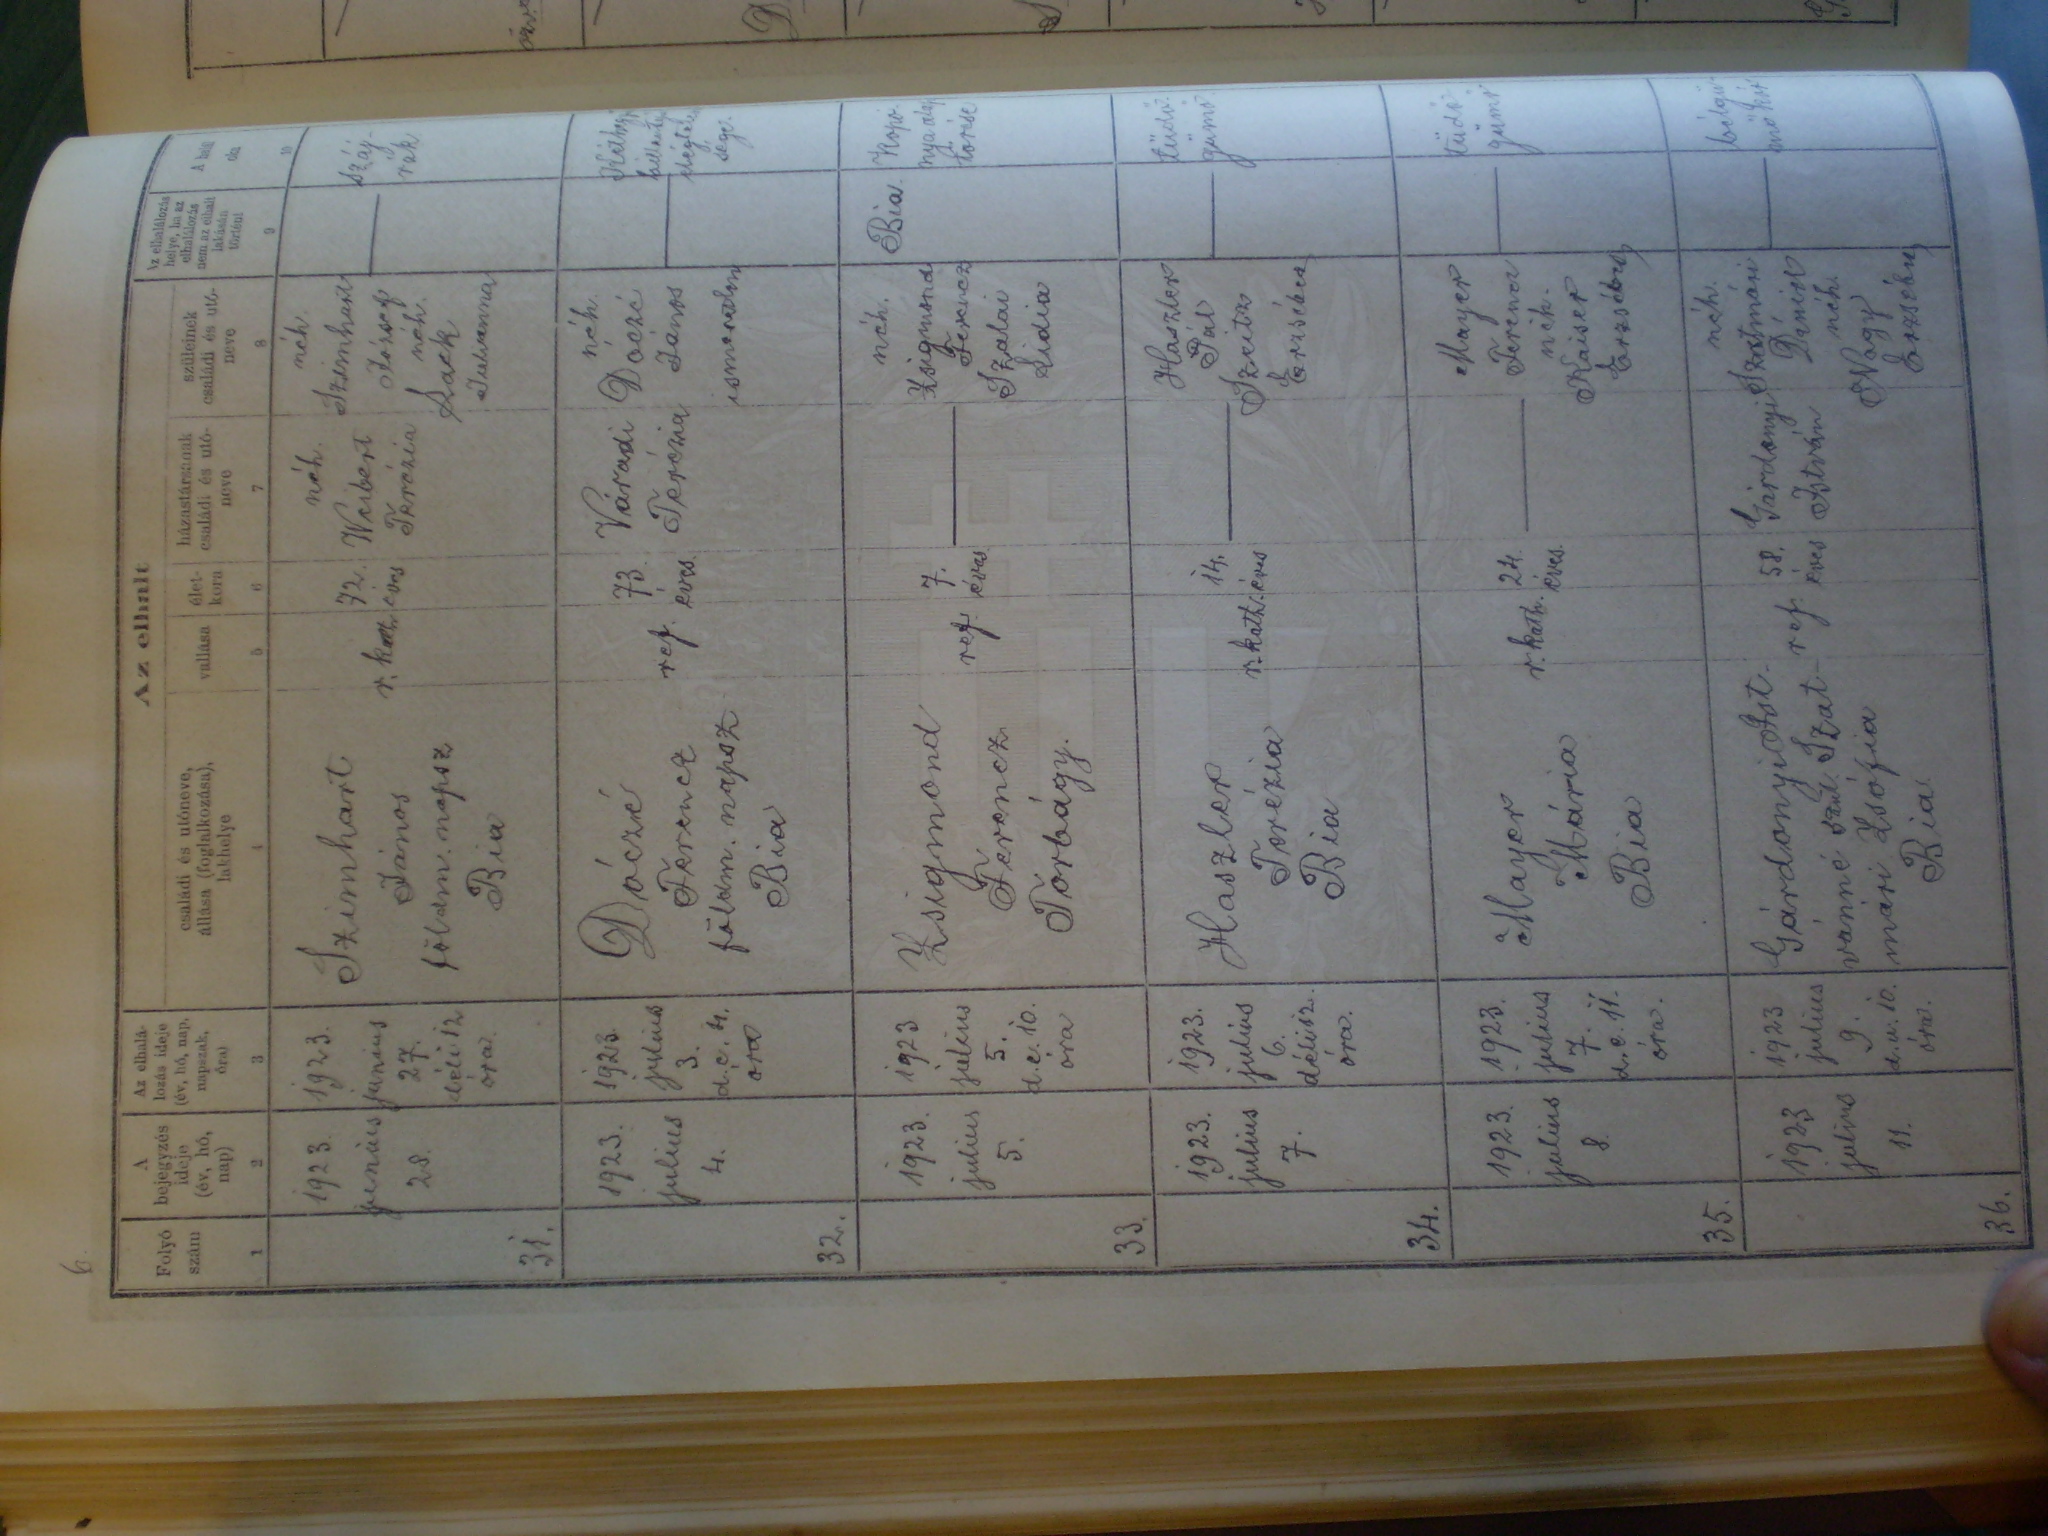 6.
Az elhalt
Folyó
szám
A
bejegyzés
ideje
(év, hó,
nap)
Az elhalá-
lozás ideje
(év, hó, nap,
napszak,
óra)
családi és utóneve,
állása (foglalkozása),
lakhelye
vallása
élet-
kora
házastársának
családi és utó-
neve
szüleinek
családi és utó-
neve
Az elhalálozás
helye, ha az
elhalálozás
nem az elhalt
lakásán
történt
A halál
oka
1
2
3
4
5
6
7
8
9
10
31.
1923.
junius
28.
1923.
junius
27.
déli 12
óra.
Szimhart
János
földm. napsz
Bia
r. kath.
72.
éves
néh.
Weibert
Terézia
néh.
Szimhart
József
néh.
Lack
Julianna
száj-
rák
32.
1923.
julius
4.
1923.
julius
3.
d.e. 4.
óra
Dóczé
Ferencz
földm. napsz.
Bia
ref.
73.
éves.
Váradi
Terézia
néh.
Dóczé
János
ismeretlen
33.
1923.
julius
5.
1923
julius
5.
d.e. 10.
óra
Zsigmond
Ferencz
Torbágy.
ref.
7.
éves
néh.
Zsigmond
Ferencz
Szalai
Lidia
Bia.
Kopo-
nya alap
törése
34.
1923.
julius
7.
1923.
julius
6.
déli 12.
óra.
Haszler
Terézia
Bia
r. kath.
14.
éves
Haszler
Pál
Szeitz
Erzsébet
tüdő-
gümő
35.
1923.
julius
8.
1923.
julius
7.
d.e. 11.
óra.
Mayer
Mária
Bia
r. kath.
24.
éves.
Mayer
Ferencz
néh.
Kaiser
Erzsébet
tüdő-
gümő
36.
1923
julius
11.
1923
julius
9.
d.u. 10.
óra.
Gárdonyi Ist-
vánné szül. Szat-
mári Zsófia
Bia
ref.
58.
éves
Gárdonyi
István
néh.
Szatmári
Dániel
néh.
Nagy
Erzsébet